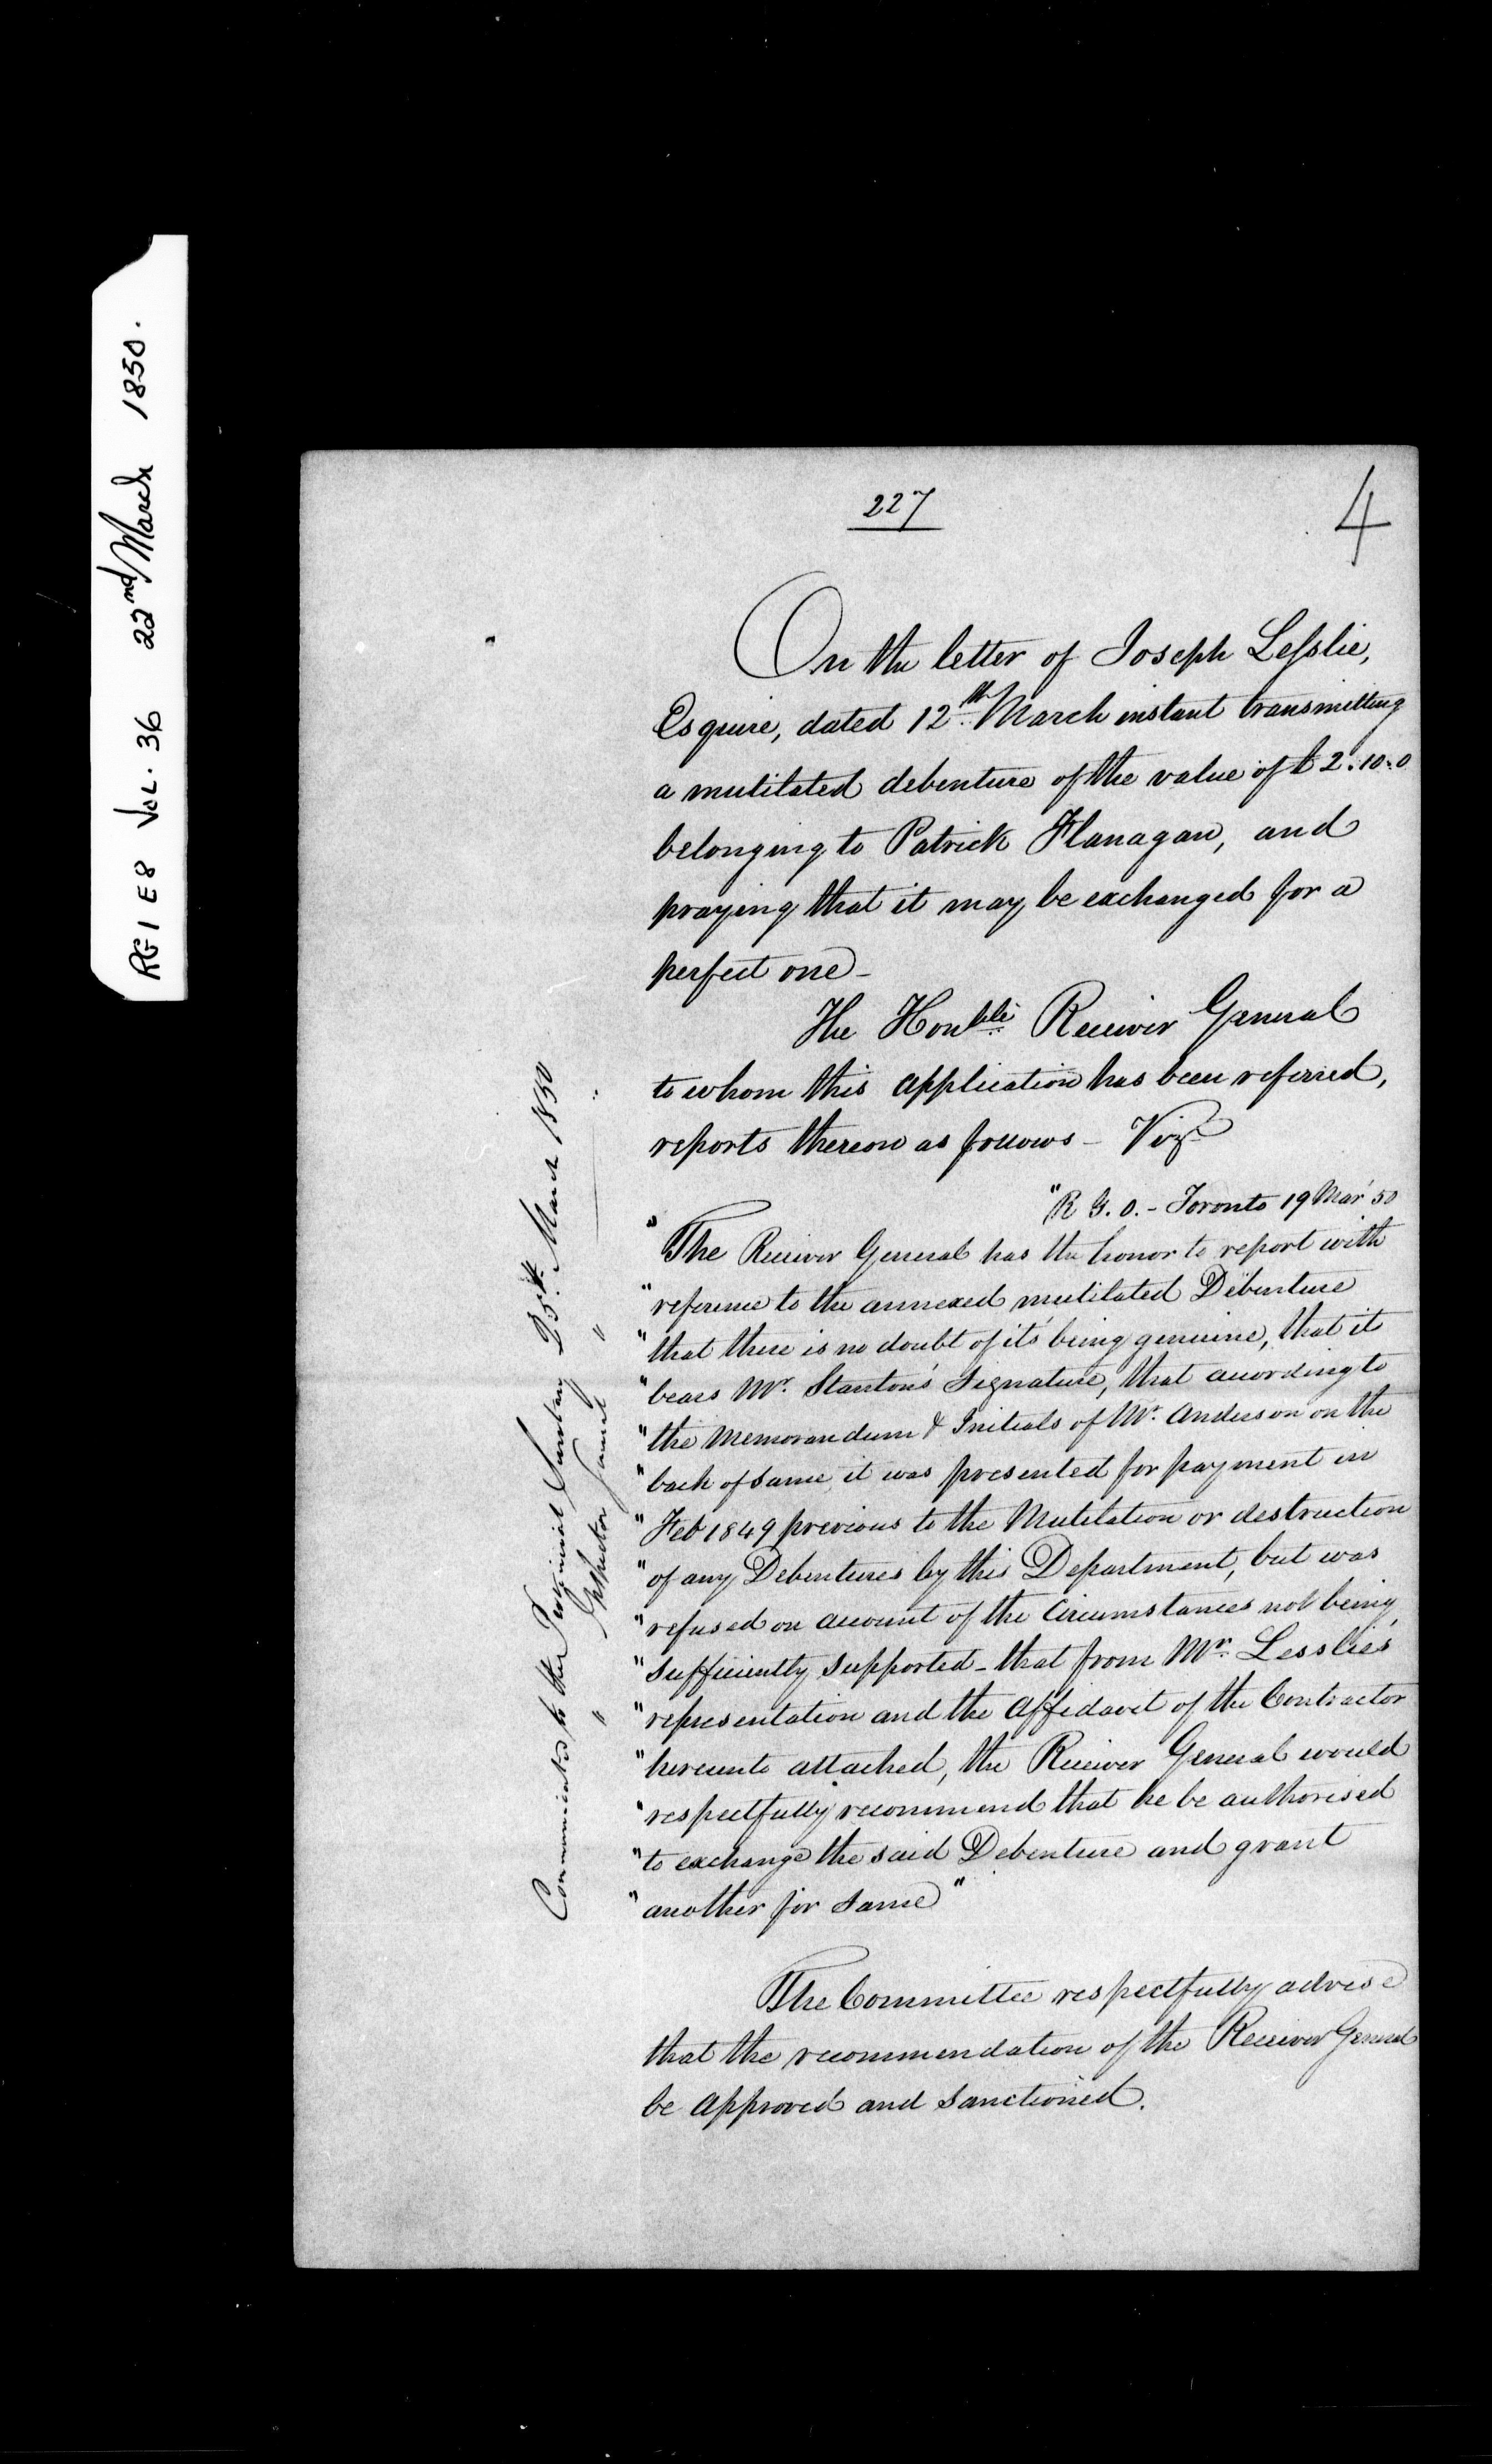 RG 1 E8 VOL. 36 22nd March 1850.
227
4
On the letter of Joseph Lesslie,
Esquire, dated 12th March instant transmitting
a mutilated debenture of the value of £2.10.0
belonging to Patrick Flanagan, and
praying that it may be exchanged for a
perfect one -
The Honble Receiver General
to whom this application has been referred,
reports thereon as follows - Viz
"R G. O. - Toronto 19 Mar 50
"The Receiver General has the honor to report with
"reference to the annexed mutilated Debenture
"that there is no doubt of it's being genuine, that it
"bears Mr. Stanton's Signature, that according to
"the Memorandum & Initials of Mr. Anderson on the
"back of same it was presented for payment in
"Feb 1849 previous to the Mutilation or destruction
"of any Debentures by this Department, but was
"refused on account of the Circumstances not being
"sufficiently supported - that from Mr. Lesslie's
"representation and the Affidavit of the Contractor
"hereunto attached, the Receiver General would
"respectfully recommend that he be authorised
"to exchange the said Debenture and grant
"another for same"
The Committee respectfully advise
that the recommendation of the Receiver General
be approved and sanctioned.
Communicated to the Provincial Secretary 25th. March 1850
" " Inspector General "